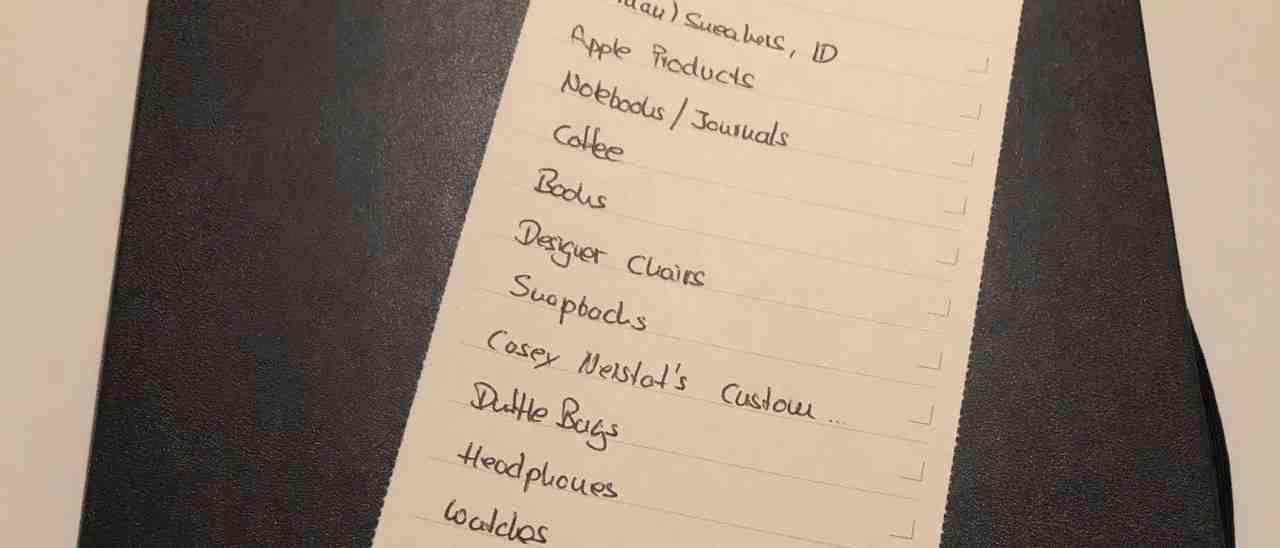 Sneakers, ID
Apple Products
Notebooks / Journals
Coffee
Books
Designer Chairs
Snapbacks
Casey Neistat's Custom ...
Duffle Bags
Headphones
Watches